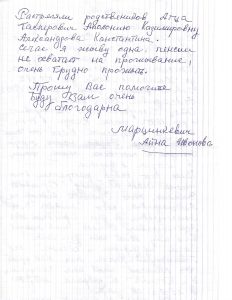 Растреляли родственников, Отца
Павлович Аполонию Казимировну
Александрова Константина.
сечас я живу одна. пенсии
не хватает на проживание,
очень трудно прожить.
Прошу Вас помогите
буду Вам очень
благодарна
Марцинкевич
Анна